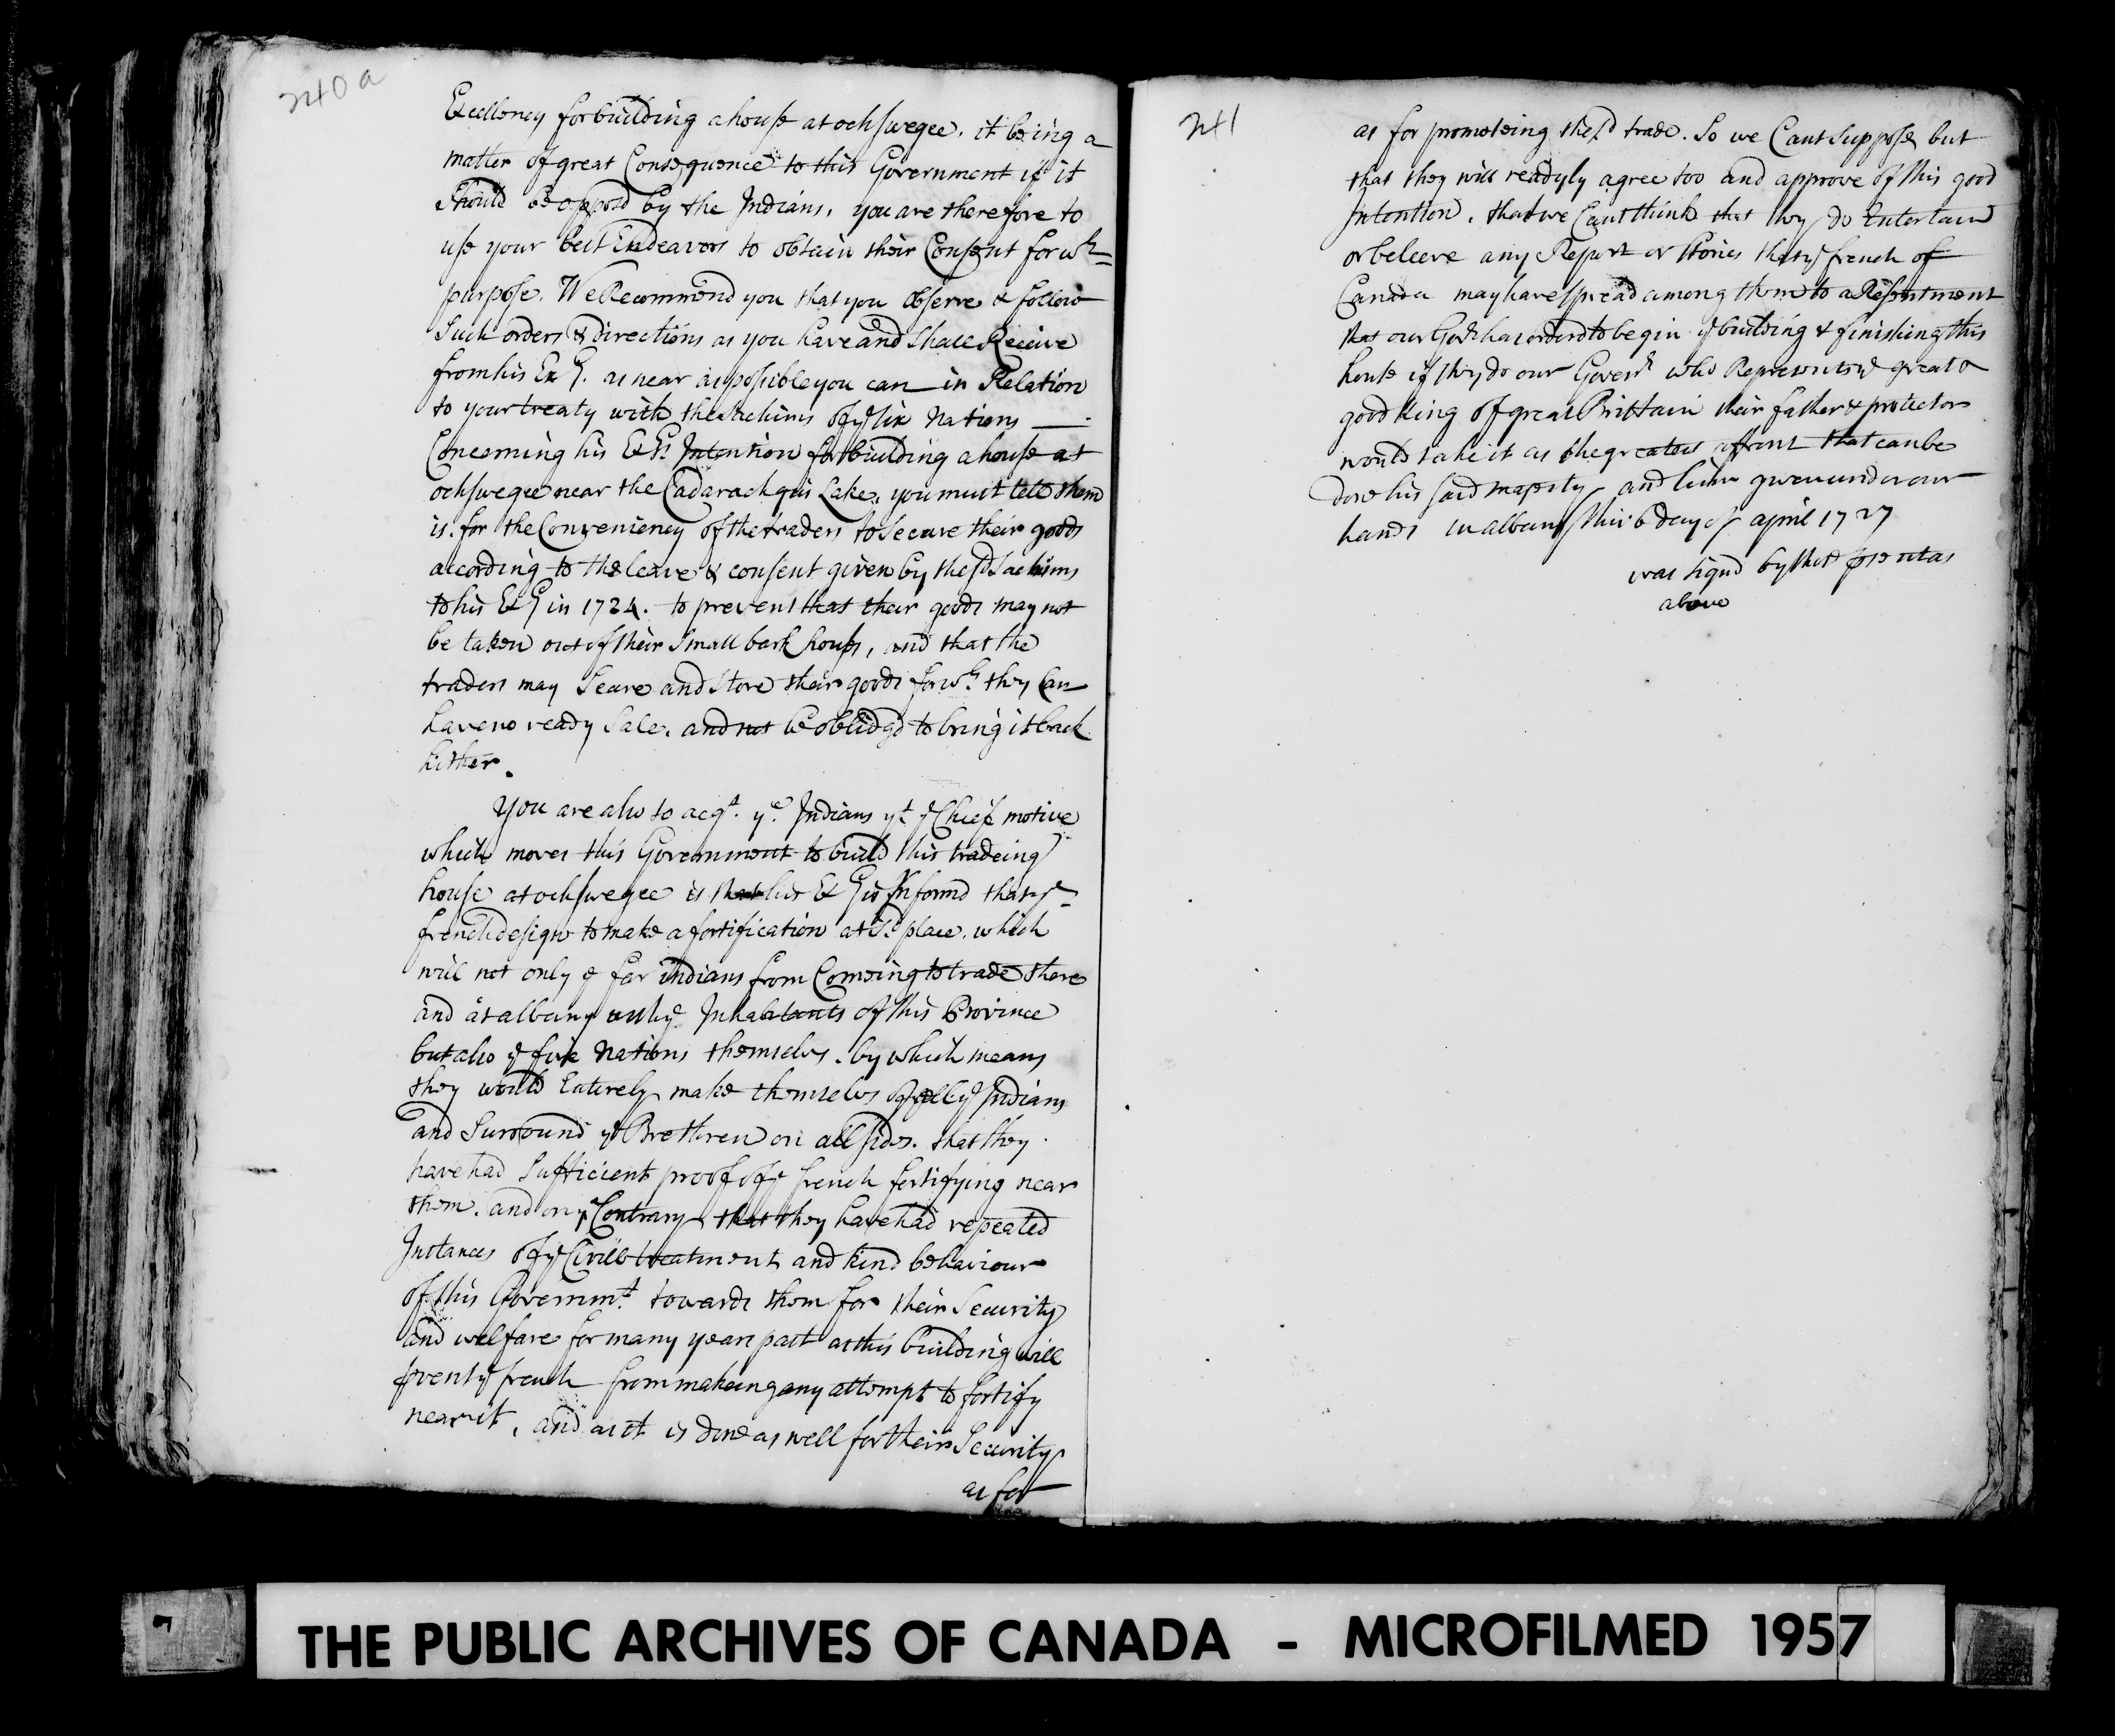 240a
Excellency for building a house at ochswegee, it being a
matter of great Consequence to this Government if it
Should be opposd by the Indians, you are therefore to
use your best Endeavors to obtain their Consent for wh=
purpose. We Recommend you that you observe & follow
Such orders & directions as you have and Shall Receive
from his Exy. as near as possible you can in Relation
to your treaty with the Sachims of ye six Nations —
Concerning his Exys Intention for building a house at
ochswegee near the Cadarachquis Lake, you must tell them
is. for the Conveniency of the traders to Secure their goods
according to the leave & consent given by the sd Sachims
to his Exy in 1724. to prevent that their goods may not
be taken out of their Small bark houses, and that the
traders may Secure and Store their goods for wh they Can
have no ready Sale, and not be oblidgd to bring it back
hither.
You are also to acqt. ye. Indians yt ye Chief motive
which moves this Government to build this tradeing
house at ochswegee is that his Exy is Informd that ye
french design to make a fortification at sd place. which
will not only ye far indians from Comeing to trade there
and at albany wth ye Inhabitants of this Province
but also ye five Nations themselves. by which means
they would Entirely make themselves of all ye Indians
and Surround ye Brethren on all sides. that they
have had Sufficient proof of ye french fortifying near
them. and on ye Contrary that they have had repeated
Instances of ye Civill treatment and kind behaviour
of this Governmt. towards them for their Security
and welfare for many years past as this building will
prevent ye french from makeing any attempt to fortify
near it, and as it is done as well for their Security
as for
241
as for promoteing the sd trade. So we Cant Suppose but
that they will readyly agree too and approve of this good
Intention. that we Cant think that they do Entertain
or beleeve any Report or Stories that ye french of
Canada may have spread among them to a Resentment
that our Govr has orderd to begin ye building & finishing this
house if they do our Goverr who Represents ye great &
good King of great Brittain their father & protector
would take it as the greatest affront that can be
done his said majesty and given under our
hands in albany this 6 day of april 1727
was signd by the
above
THE PUBLIC ARCHIVES OF CANADA - MICROFILMED 1957
7